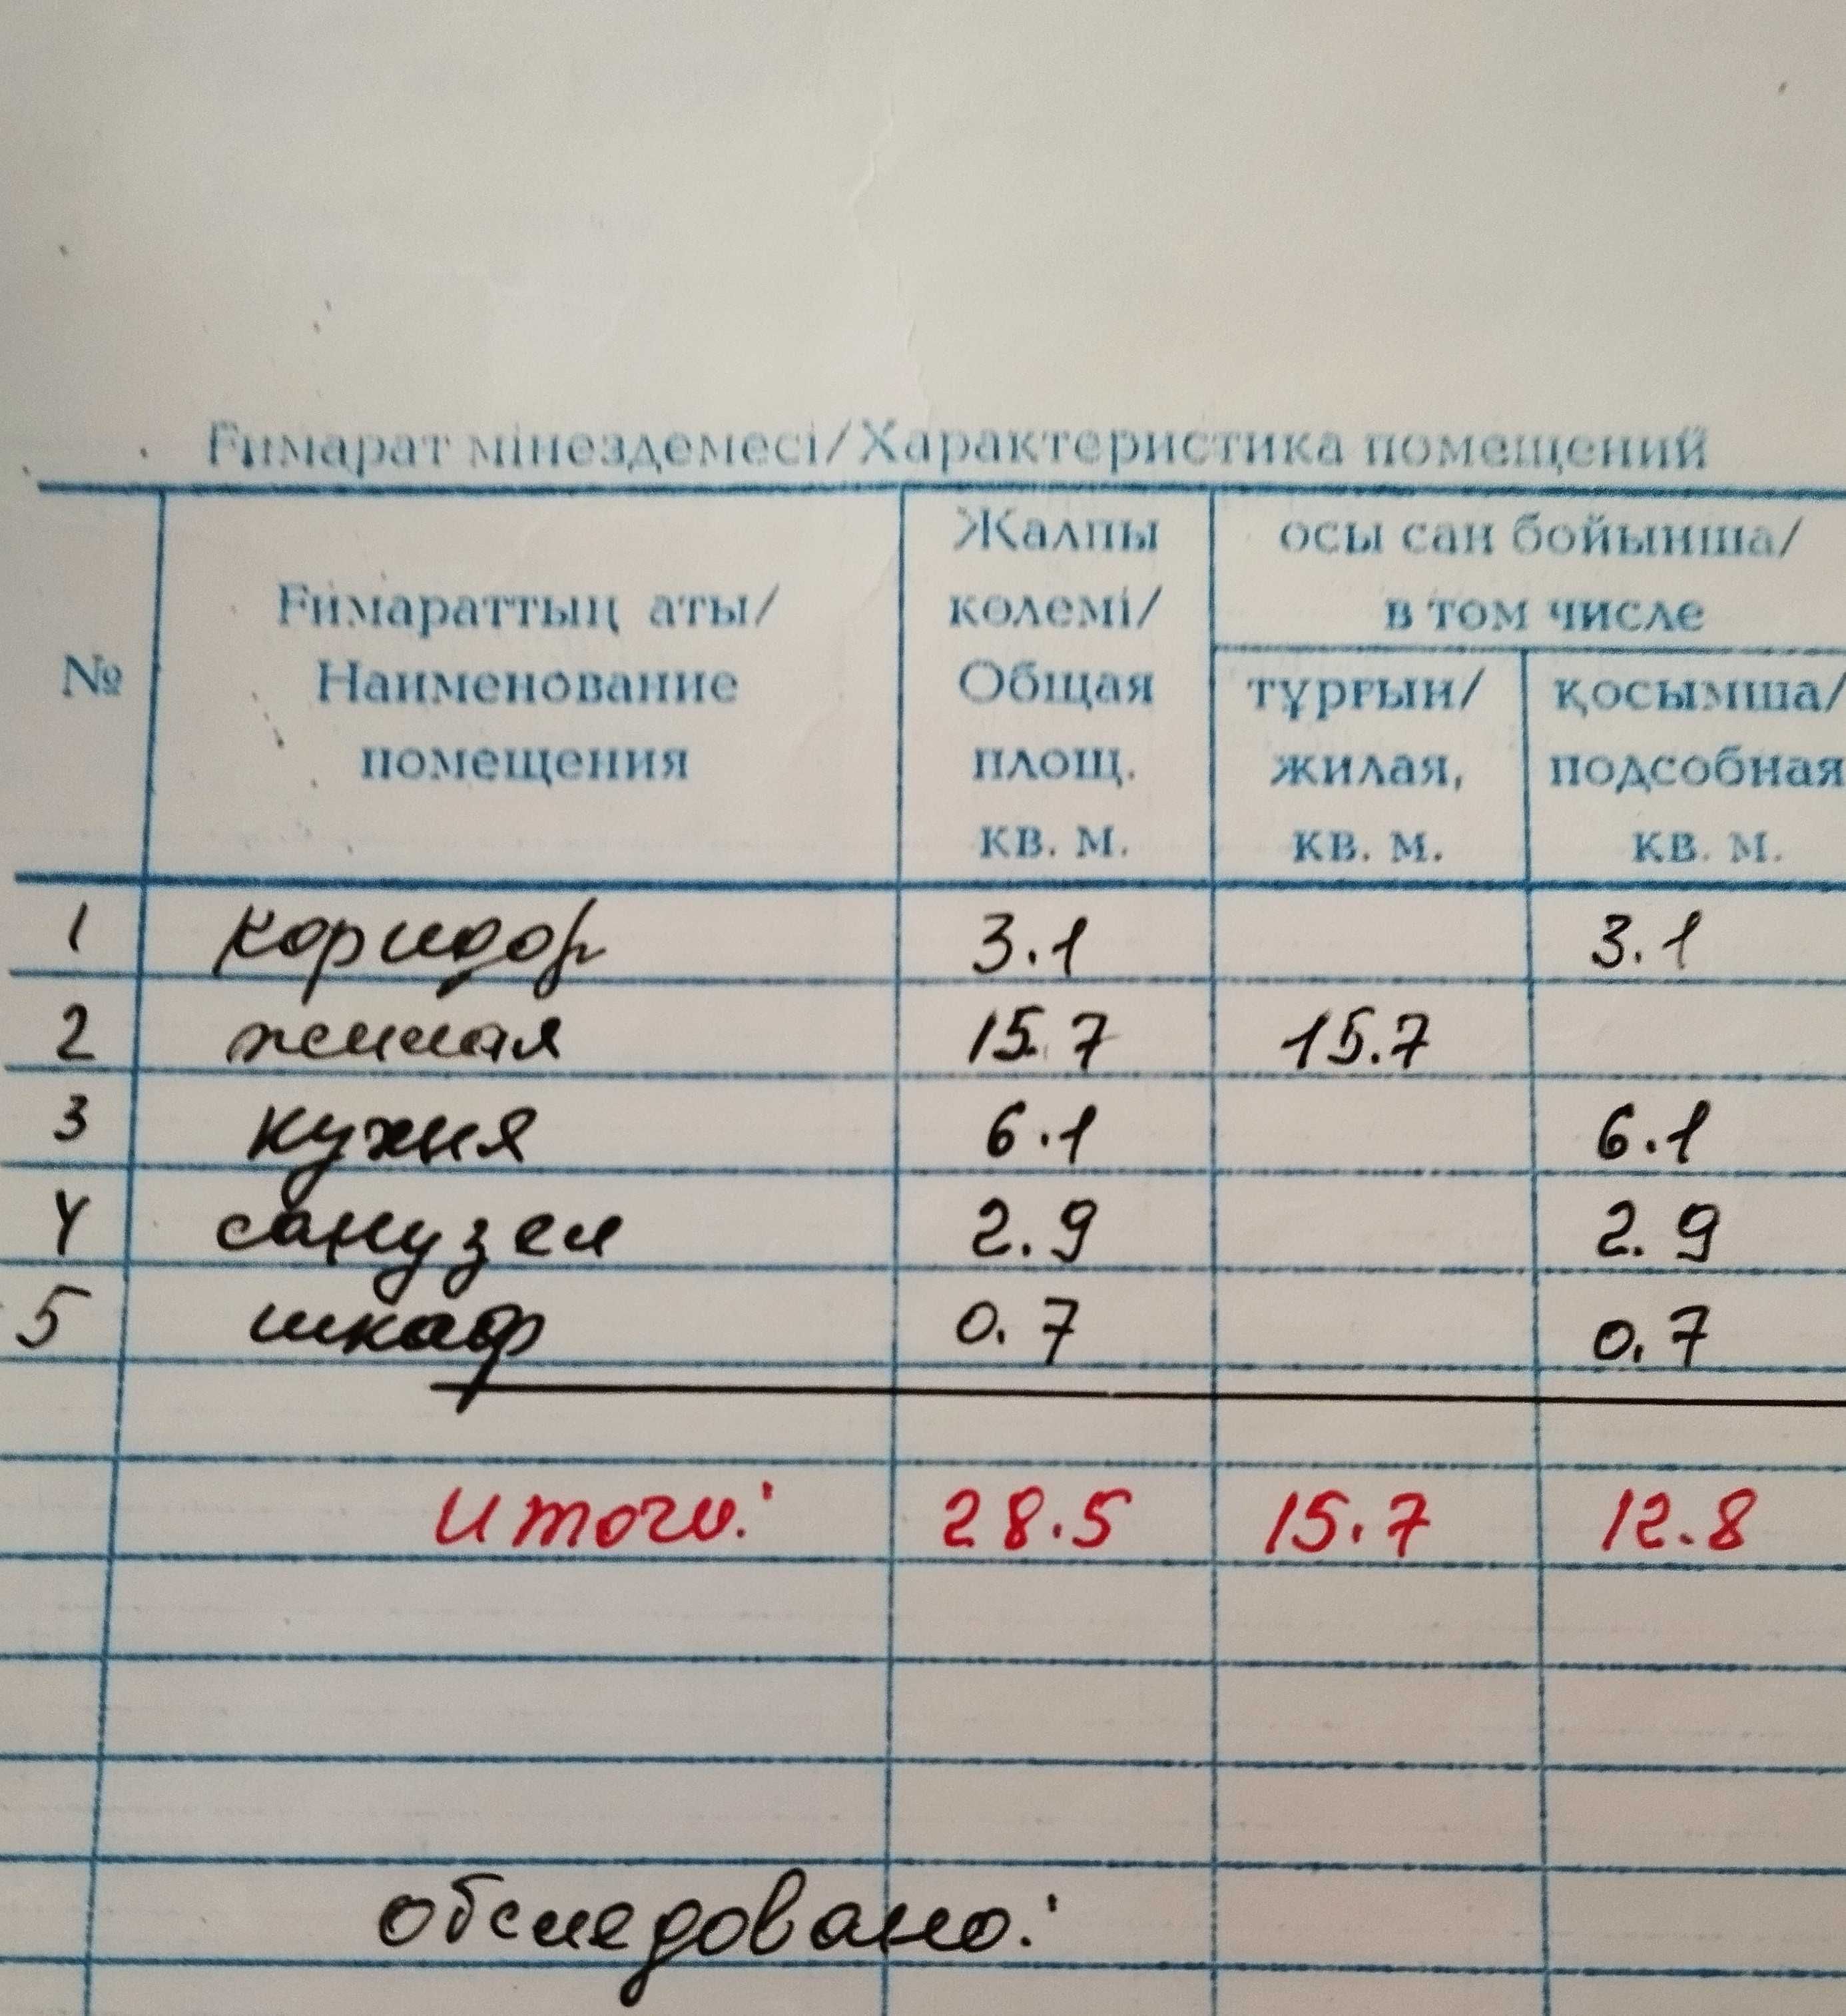 Ғимарат мінездемесі/Характеристика помещений
№
Ғимараттың аты/
Наименование
помещения
Жалпы
көлемі/
Общая
площ.
кв. м.
осы сан бойынша/
в том числе
тұрғын/
жилая,
кв. м.
қосымша/
подсобная
кв. м.
1 коридор 3.1 3.1
2 жилая 15.7 15.7
3 кухня 6.1 6.1
4 санузел 2.9 2.9
5 шкаф 0.7 0.7
итого: 28.5 15.7 12.8
обследовано: